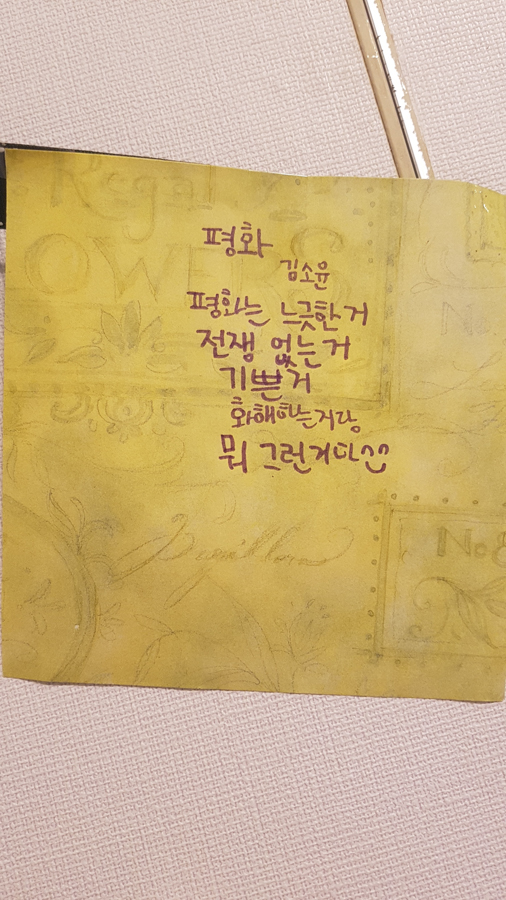 Regal
OWELS
No.
평화
김소윤
평화는 느긋한거
전쟁 없는거
기쁜거
화해하는거랑
뭐 그런거다^^
No8